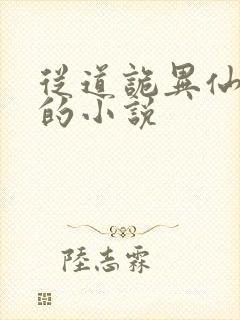 從道詭異仙
的小說
陸志霖